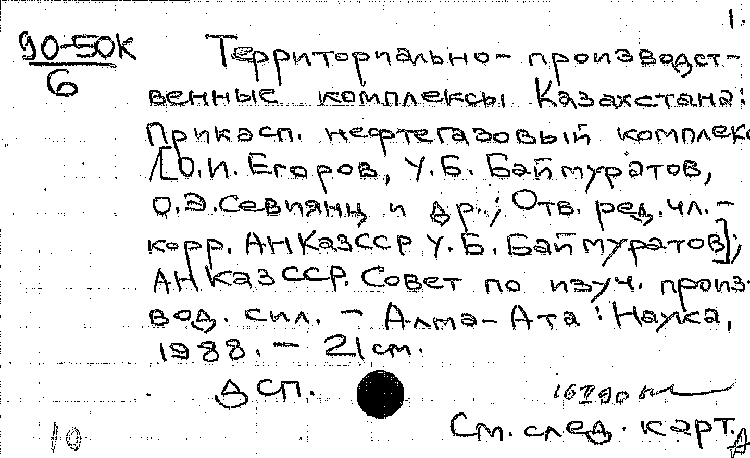 1.
90-50К
6
Территориально-производст-
венные комплексы Казахстана:
Прикасп. нефтегазовый комплекс
/[О.И. Егоров, У.Б. Баймуратов,
О.Э. Севиянц и др.; Отв. ред. чл.-
корр. АН КазССР У.Б. Баймуратов];
АН КазССР. Совет по изуч. произ-
вод. сил. - Алма-Ата: Наука,
1988. - 21 см.
ДСП.
См. след. карт.
10